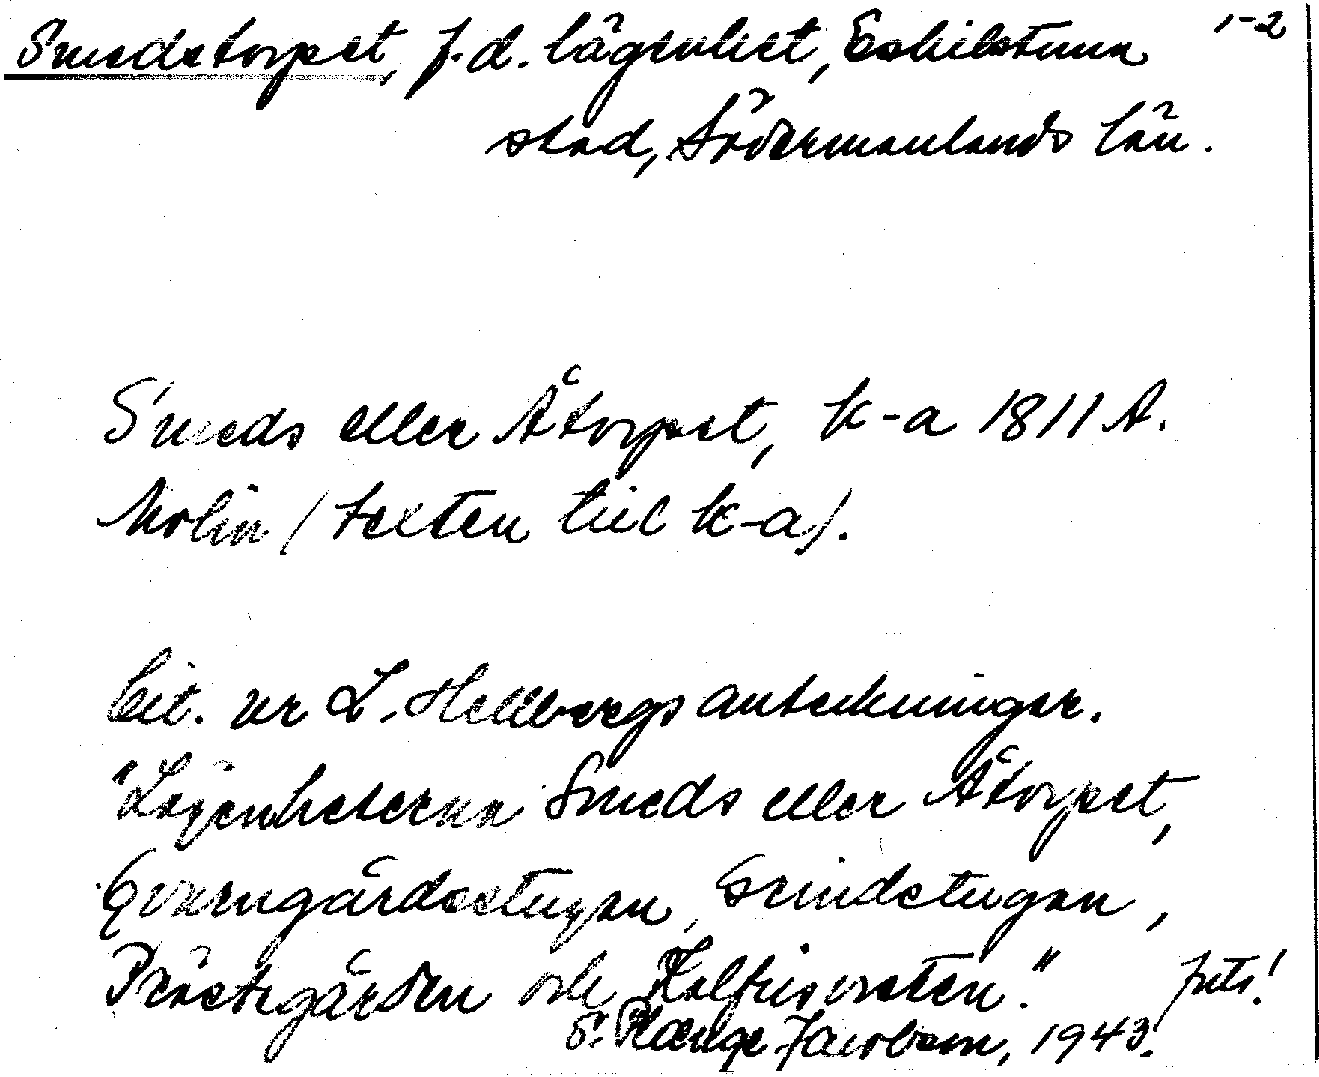 Smedstorpet, f.d. lägenhet, Eskilstuna 1-2
stad, Södermanlands län.
Smeds eller Åtorpet, k-a 1811 A.
Molin (texten till k-a).
Cit. ur L. Hellbergs anteckningar.
"Lägenheterna Smeds eller Åtorpet,
Qvarngärdsstugan, Grindstugan,
Prästegården och Kalfhesten." forts!
S. Jacobson, 1943.